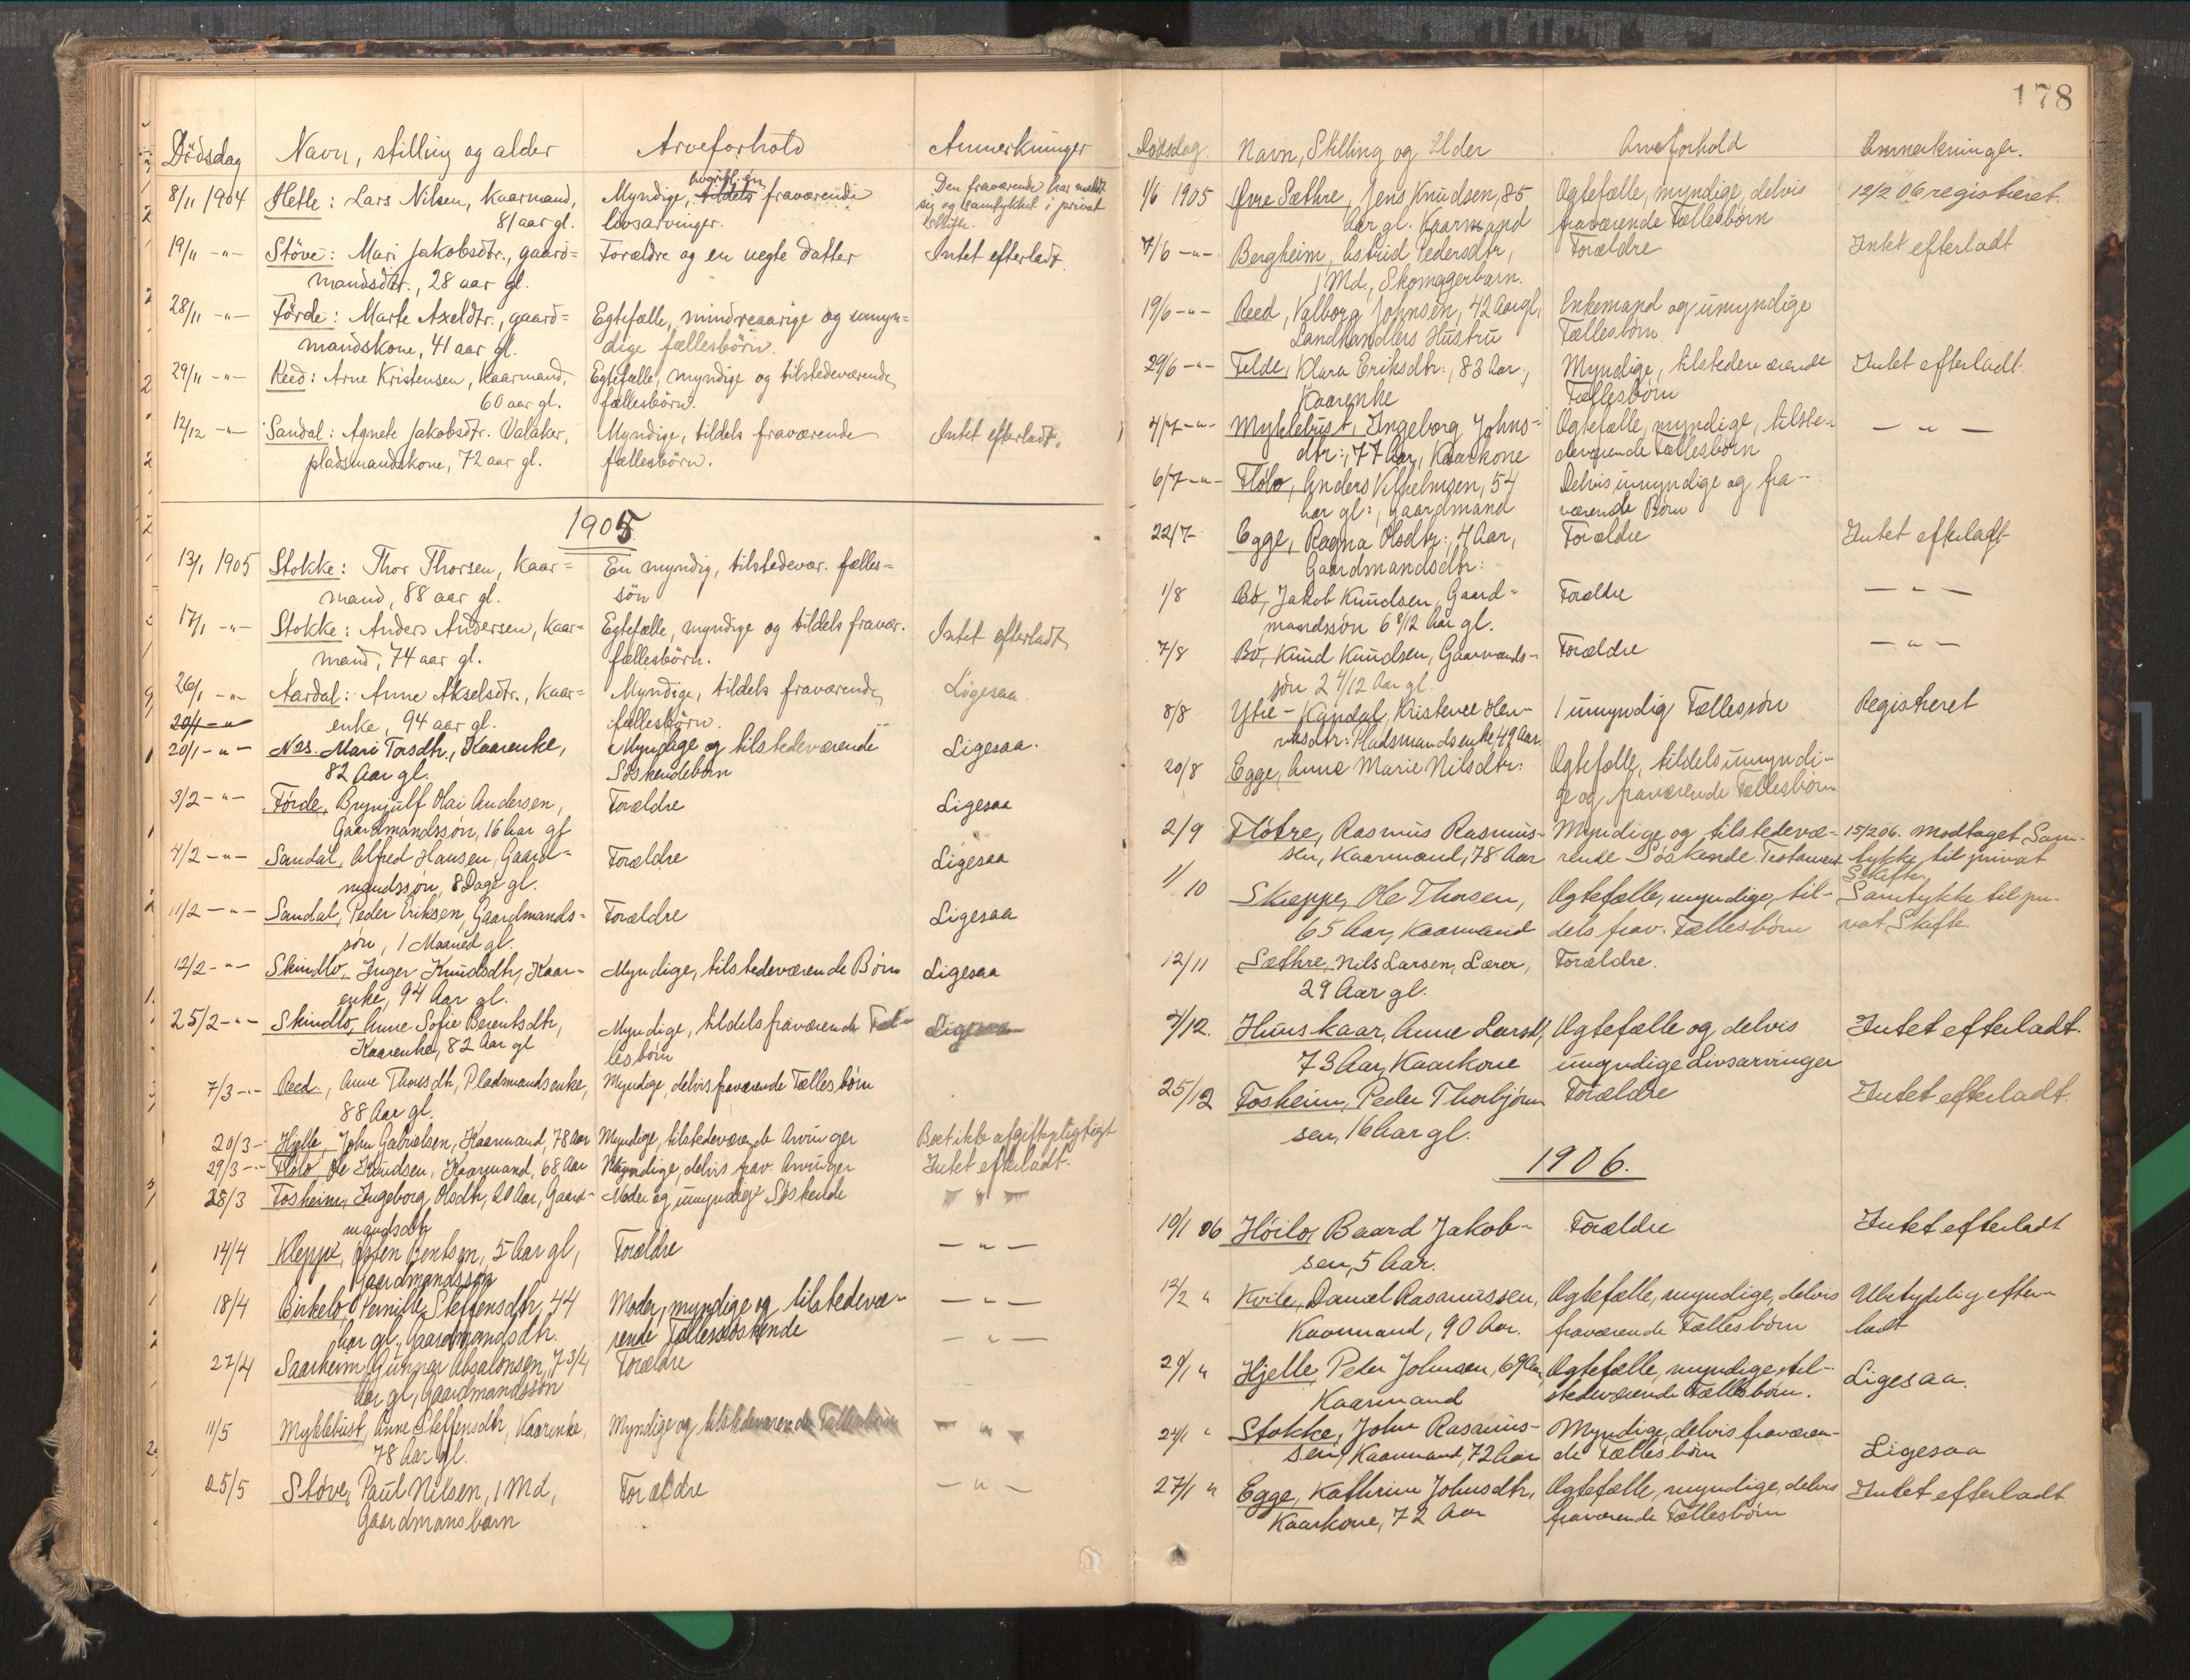 Dödsdag Navn, stilling og alder Arveforhold Anmerkninger
8/11 1904 Hetle: Lars Nilsen, kaarmand, Myndige, hvoraf. en tildels fraværende Den fraværende har meldt
81 aar gl. livsarvinger. sig og samtykket i privat
skifte.
19/11 -"- Støve: Mari Jakobsdtr., gaard= Forældre og en uegte datter Intet efterladt.
mandsdtr., 28 aar gl.
28/11 -"- Förde: Marte Axeldtr., gaard= Egtefælle, mindreaarige og umyn=
mandskone, 41 aar gl. dige fællesbörn.
29/11 -"- Reed: Arne Kristensen, kaarmand, Egtefælle, myndige og tilstedeværende
60 aar gl. fællesbörn.
12/12 -"- Sandal: Agnete Jakobsdtr. Valaker, Myndige, tildels fraværende Intet efterladt.
pladsmandskone, 72 aar gl. fællesbörn.
1905
13/1 1905 Stokke: Thor Thorsen, kaar= En myndig, tilstedevær. fælles=
mand, 88 aar gl. sön
17/1 -"- Stokke: Anders Andersen, kaar= Egtefælle, myndige og tildels fravær. Intet efterladt
mand, 74 aar gl. fællesbörn.
26/1 -"- Aardal: Anne Akselsdtr., kaar= Myndige, tildels fraværende Ligesaa.
20/1 -"- enke, 94 aar gl. fællesbörn.
20/1 -"- Nes. Mari Torsdtr., Kaarenke, Myndige og tilstedeværende Ligesaa.
82 Aar gl. Søskendebørn
3/2 -"- Førde, Brynjulf Olai Andersen, Forældre Ligesaa
Gaardmandssøn, 16 Aar gl
4/2 -"- Sandal, Alfred Hansen, Gaard- Forældre Ligesaa
mandssøn, 8 Dage gl.
11/2 -"- Sandal, Peder Eriksen, Gaardmands- Forældre Ligesaa
søn, 1 Maaned gl.
12/2 -"- Skindlo, Inger Knudsdtr, Kaar- Myndige, tilstedeværende Børn Ligesaa
enke, 94 Aar gl.
25/2 -"- Skindlo, Anne Sofie Berentsdtr, Myndige, tildels fraværende Fæl- Ligesaa
Kaarenke, 82 Aar gl lesbørn
7/3 -"- Reed, Anne Thomsdtr, Pladsmandsenke, Myndige, delvis fraværende Fællesbørn
88 Aar gl.
20/3 - Hjelle, John Gabrielsen, Kaarmand, 78 Aar Myndige, tilstedeværende Arvinger Boet ikke afgiftspligtigt
29/3 -"- Flølo, Ole Knudsen, Kaarmand, 68 Aar Myndige, delvis frav. Arvinger Intet efterladt.
28/3 Fosheim, Ingeborg Olsdtr, 20 Aar, Gaard- Moder og umyndige Søskende - " -
mandsdtr
14/4 Kleppe, Bentsen, 5 Aar gl, Forældre - " -
Gaardmandssøn
18/4 Birkelo, Pernille Steffensdtr, 44 Moder, myndige og tilstedevæ- - " -
Aar gl, Gaardmandsdtr. rende Fællessøskende
27/4 Saarheim, Gunnar Absalonsen, 7 3/4 Forældre - " -
Aar gl, Gaardmandssøn
11/5 Myklebust, Anne Steffensdtr, Kaarenke, Myndige og tilstedeværende Fællesbørn - " -
78 Aar gl.
25/5 Støve, Paul Nilsen, 1 Md, Forældre - " -
Gaardmansbarn
178
Dødsdag. Navn, Stilling og Alder Arveforhold Anmerkninger.
1/6 1905 Øvre Sæthre, Jens Knudsen, 85 Ægtefælle, myndige, delvis 12/2 06 registreret.
Aar gl. Kaarmand fraværende Fællesbørn
7/6 -"- Bergheim, Astrid Pedersdtr, Forældre Intet efterladt
1 Md., Skomagerbarn.
19/6 -"- Reed, Valborg Johnsen, 42 Aar gl, Enkemand og umyndige
Landhandlers Hustru Fællesbørn.
29/6 -"- Felde, Klara Eriksdtr:, 83 Aar, Myndige, tilstedeværende Intet efterladt.
Kaarenke Fællesbørn
4/7 -"- Myklebust, Ingeborg Johns- Ægtefælle, myndige, tilste- - " -
dtr:, 77 Aar, Kaarkone deværende Fællesbørn
6/7 -"- Flølo, Anders Vilhelmsen, 54 Delvis umyndige og fra-
Aar gl:, Gaardmand værende Børn
22/7 Egge, Ragna Olsdtr:, 4 Aar, Forældre Intet efterladt
Gaardmandsdtr:
1/8 Bø, Jakob Knudsen, Gaard- Forældre - " -
mandssøn 6 8/12 Aar gl.
7/8 Bø, Knud Knudsen, Gaarmands- Forældre - " -
søn 2 4/12 Aar gl.
8/8 Ytre-Kandal, Kristence Hen- 1 umyndig Fællessøn Registreret
riksdtr: Pladsmandsenke, 49 Aar.
20/8 Egge, Anne Marie Nilsdtr: Ægtefælle, tildels umyndi-
ge og fraværende Fællesbørn
2/9 Fløtre, Rasmus Rasmus- Myndige og tilstedevæ- 15/2 06. modtaget Sam-
sen, Kaarmand, 78 Aar rende Søskende. Testament tykke til privat
Skifte.
1/10 Skjeppe, Ole Thorsen, Ægtefælle, myndige, til- Samtykke til pri-
65 Aar, Kaarmand dels frav. Fællesbørn vat Skifte
12/11 Sæthre, Nils Larsen, Lærer, Forældre.
29 Aar gl.
2/12. Huuskaar, Anne Larsd, Ægtefælle og delvis Intet efterladt.
73 Aar, Kaarkone umyndige Livsarvinger
25/12 Fosheim, Peder Thorbjørn Forældre Intet efterladt.
sen, 16 Aar gl.
1906.
19/1 06 Høilo, Baard Jakob- Forældre Intet efterladt
sen, 5 Aar.
12/2 " Kvile, Daniel Rasmussen, Ægtefælle, myndige, delvis Ubetydelig efter-
Kaarmand, 90 Aar. fraværende Fællesbørn ladt
20/1 " Hjelle, Peter Johnsen, 69 Aar, Ægtefælle, myndige, til- Ligesaa.
Kaarmand stedeværende Fællesbørn.
24/1 " Stokke, John Rasmus- Myndige, delvis fraværen-
sen, Kaarmand, 72 Aar de Fællesbørn Ligesaa
27/1 " Egge, Kathrine Johnsdtr, Ægtefælle, myndige, delvis Intet efterladt
Kaarkone, 72 Aar fraværende Fællesbørn